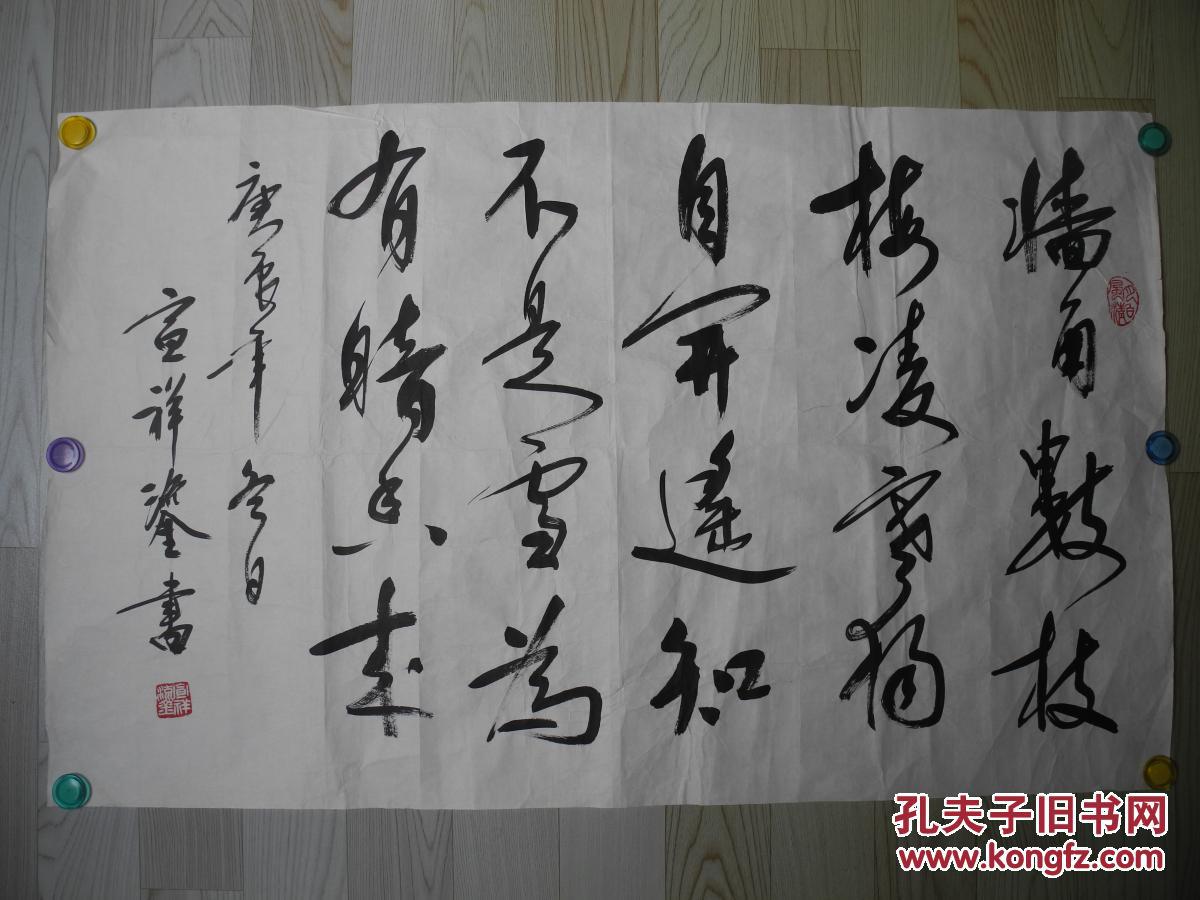 墙角數枝
梅凌寒獨
自开遥知
不是雪為
有暗香来
庚辰年冬日
宣祥鎏書
孔夫子旧书网
www.kongfz.com